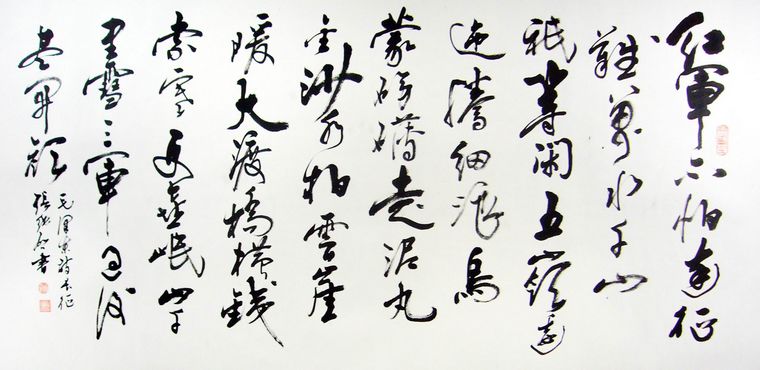 紅軍不怕遠征
難萬水千山
祇等閑五嶺逶
迤騰細浪烏
蒙磅礴走泥丸
金沙水拍雲崖
暖大渡橋橫鐵
索寒更喜岷山千
里雪三軍過後
盡開顏
毛澤東詩長征
張 書